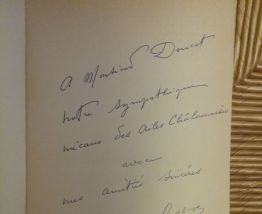 A Monsieur Doucet
notre sympathique
mécano des Ailes Châlonnaises
avec
mes amitiés sincères